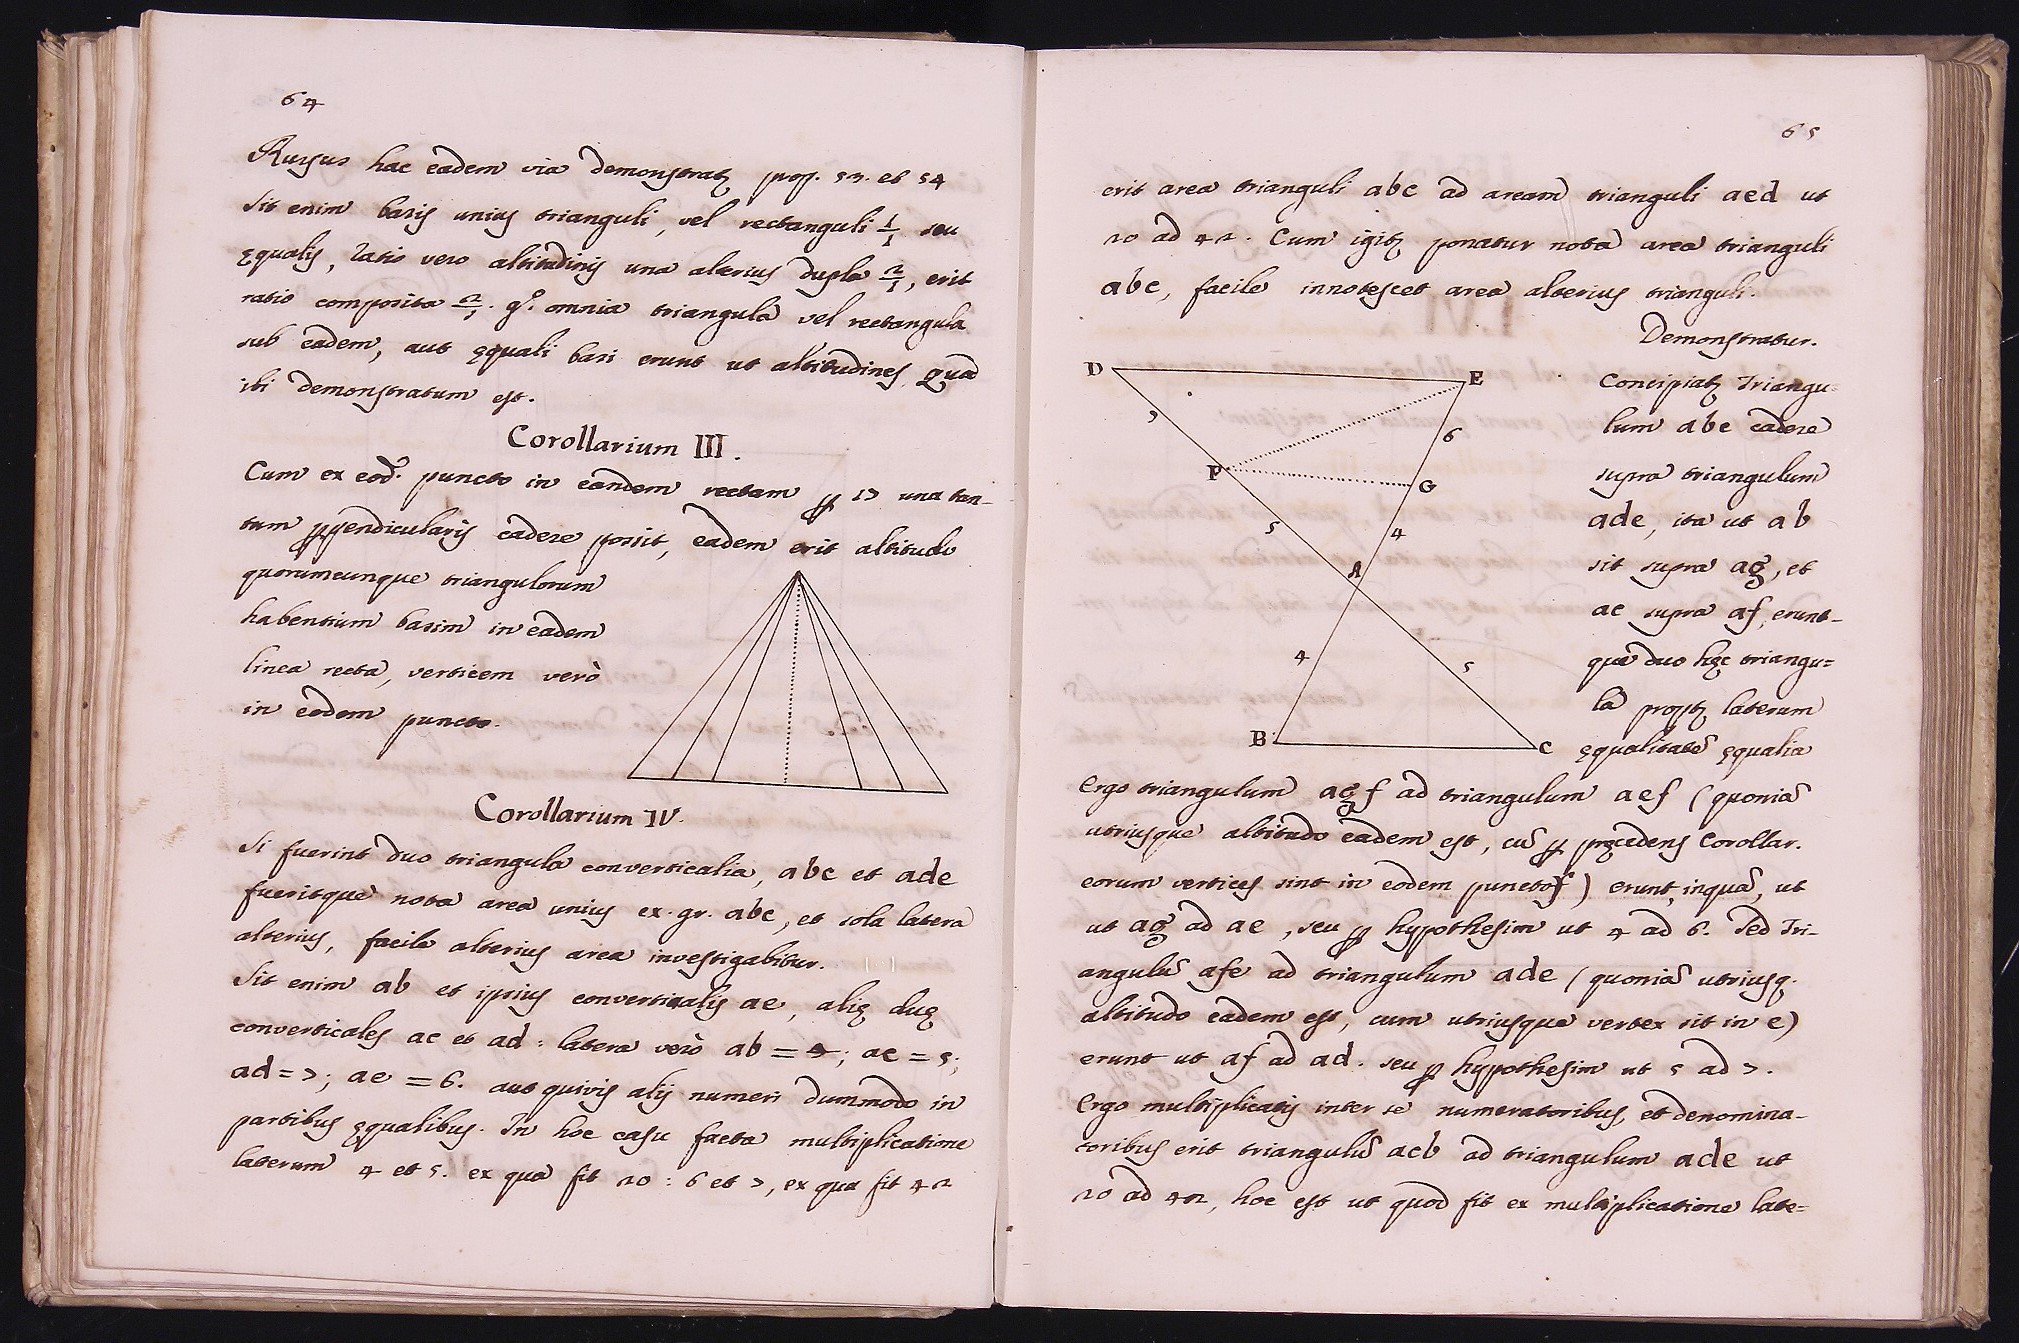 64
Rursus hac eadem via demonstratꝫ prop. 53. et 54
Sit enim basis unius trianguli, vel rectanguli 1/1 seu
ęqualis, ratio vero altitudinis una alterius dupla 2/1, erit
ratio composita 2/1. gº. omnia triangula vel rectangula
sub eadem, aut ęquali basi erunt ut altitudines, quod
ibi demonstratum est.
Corollarium III.
Cum ex eod. puncto in eandem rectam ꝑ 17 una tan-
tum ꝑpendicularis cadere possit, eadem erit altitudo
quorumcunque triangulorum
habentium basim in eadem
linea recta, verticem verò
in eodem puncto.
Corollarium IV.
Si fuerint duo triangula converticalia, abc et ade
fueritque nota area unius ex. gr. abc, et sola latera
alterius, facile alterius area investigabitur.
Sit enim ab et ipsius converticalis ae, alię duę
converticales ac et ad : latera verò ab = 4; ac = 5;
ad = 7; ae = 6. aut quivis alij numeri dummodo in
partibus ęqualibus. In hoc casu facta multiplicatione
laterum 4 et 5. ex qua fit 20 : 6 et 7, ex qua fit 42
65
erit area trianguli abc ad aream trianguli aed ut
20 ad 42. Cum igitꝫ ponatur nota area trianguli
abc, facile innotescet area alterius trianguli.
Demonstratur.
D
E
Concipiatꝫ Triangu=
7
6
lum abc cadere
F
G
supra triangulum
5
4
ade, ita ut ab
A
sit supra ag, et
ac supra af, erunt-
4
5
que duo hęc triangu=
la proptꝫ laterum
B
C
ęqualitatē ęqualia
Ergo triangulum agf ad triangulum aef (quoniā
utriusque altitudo eadem est, cū ꝑ pręcedens Corollar.
eorum vertices sint in eodem puncto f) erunt, inquā, ut
ut ag ad ae, seu ꝑ hypothesim ut 4 ad 6. Sed Tri-
angulū afe ad triangulum ade (quoniā utriusq.
altitudo eadem est, cum utriusque vertex sit in e)
erunt ut af ad ad. seu ꝑ hypothesim ut 5 ad 7.
Ergo multiplicatis inter se numeratoribus, et denomina-
toribus erit triangulū acb ad triangulum ade ut
20 ad 42, hoc est ut quod fit ex multiplicatione late=